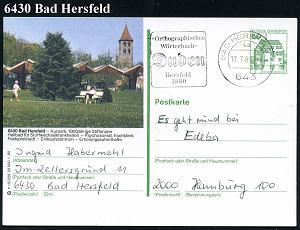 6430 Bad Hersfeld
Orthographisches
Wörterbuch
Duden
Hersfeld
1880
BAD HERSFELD
643
DEUTSCHE BUNDESPOST
6430 Bad Hersfeld – Kurpark, 1000jährige Stiftsruine
Heilbad für Stoffwechselkrankheiten – Psychosomat. Fachklinik
Festspielstadt – Einkaufszentrum – Erholungsaufenthalte
Postkarte
Es geht rund bei
Edeka
Ingrid Habermehl
(Absender)
Im Zellersgrund 11
(Postfach oder Straße und Hausnummer)
6430 Bad Hersfeld
(Postleitzahl) (Ort)
(Postfach oder Straße und Hausnummer)
2000 Hamburg 100
(Postleitzahl) (Bestimmungsort)